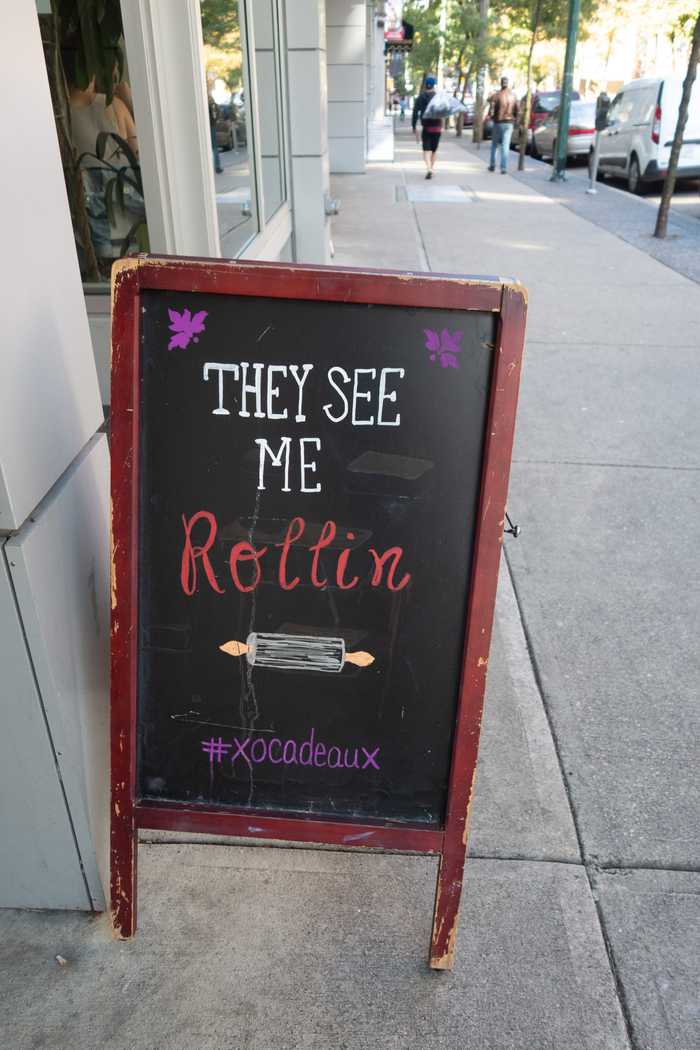 THEY SEE
ME
Rollin
#xocadeaux